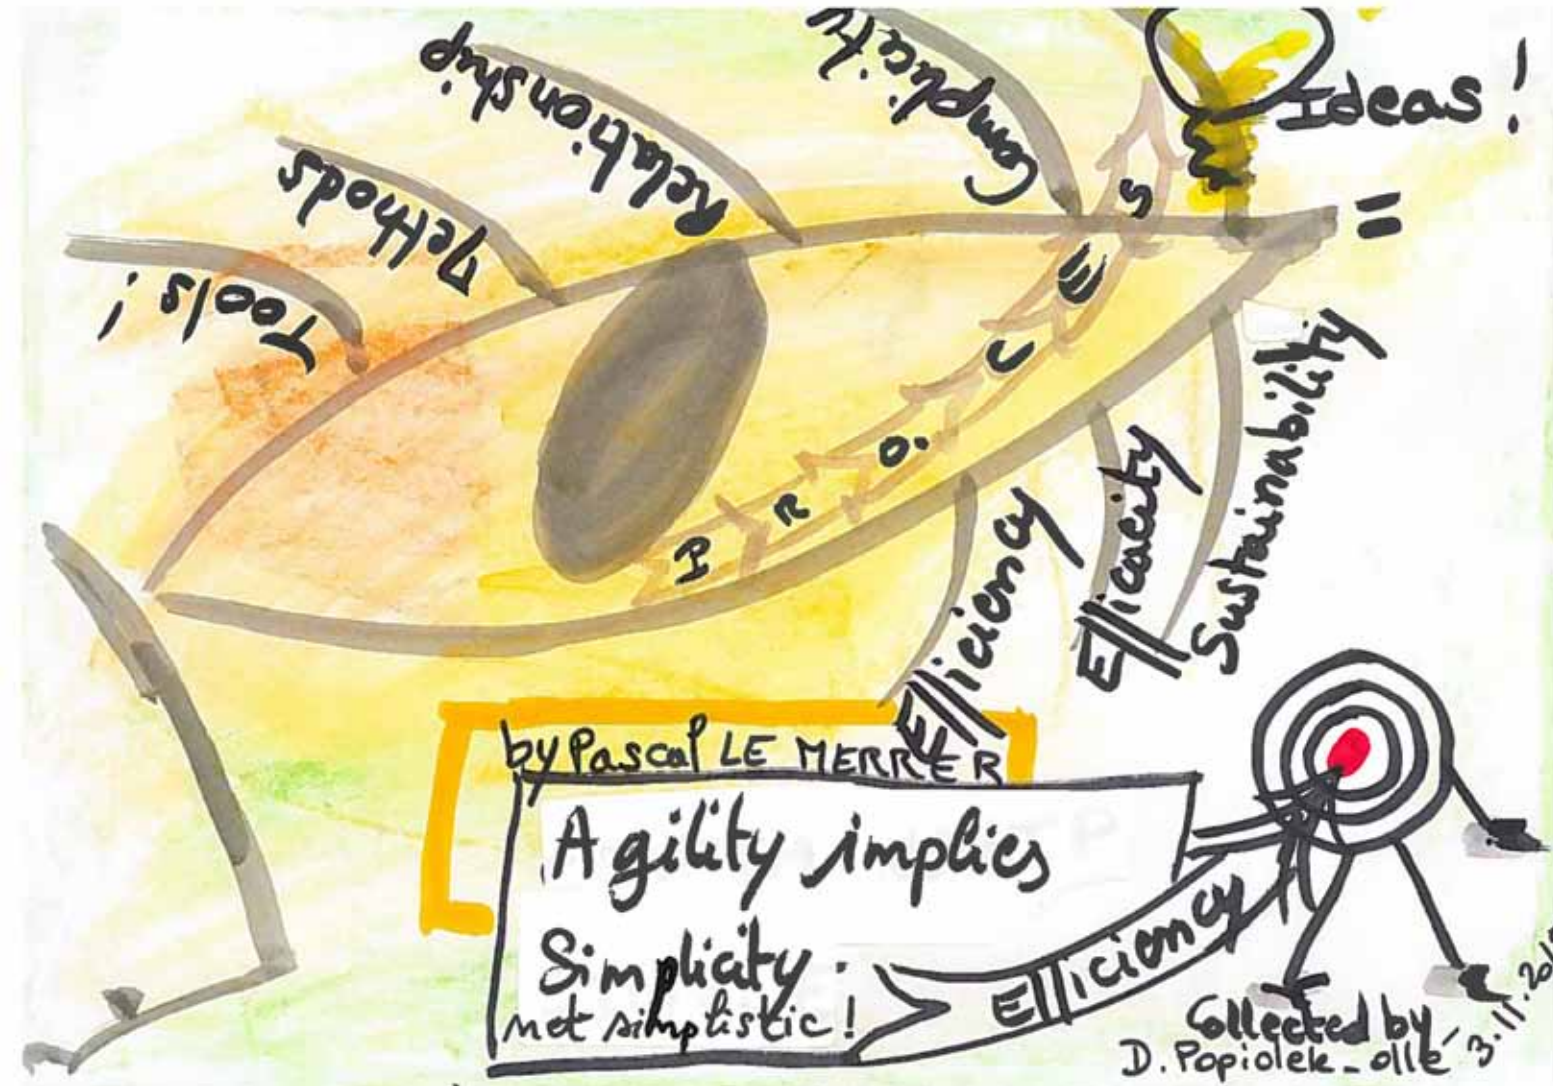 Ideas !
Complicity
Relationship
Methods
Tools !
=
P R O. C E S S
Efficiency
Efficacity
Sustainability
by Pascal LE MERRER
Agility implies
Simplicity.
not simplistic !
Efficiency
Collected by
D. Popiolek_ollé
3.11.201